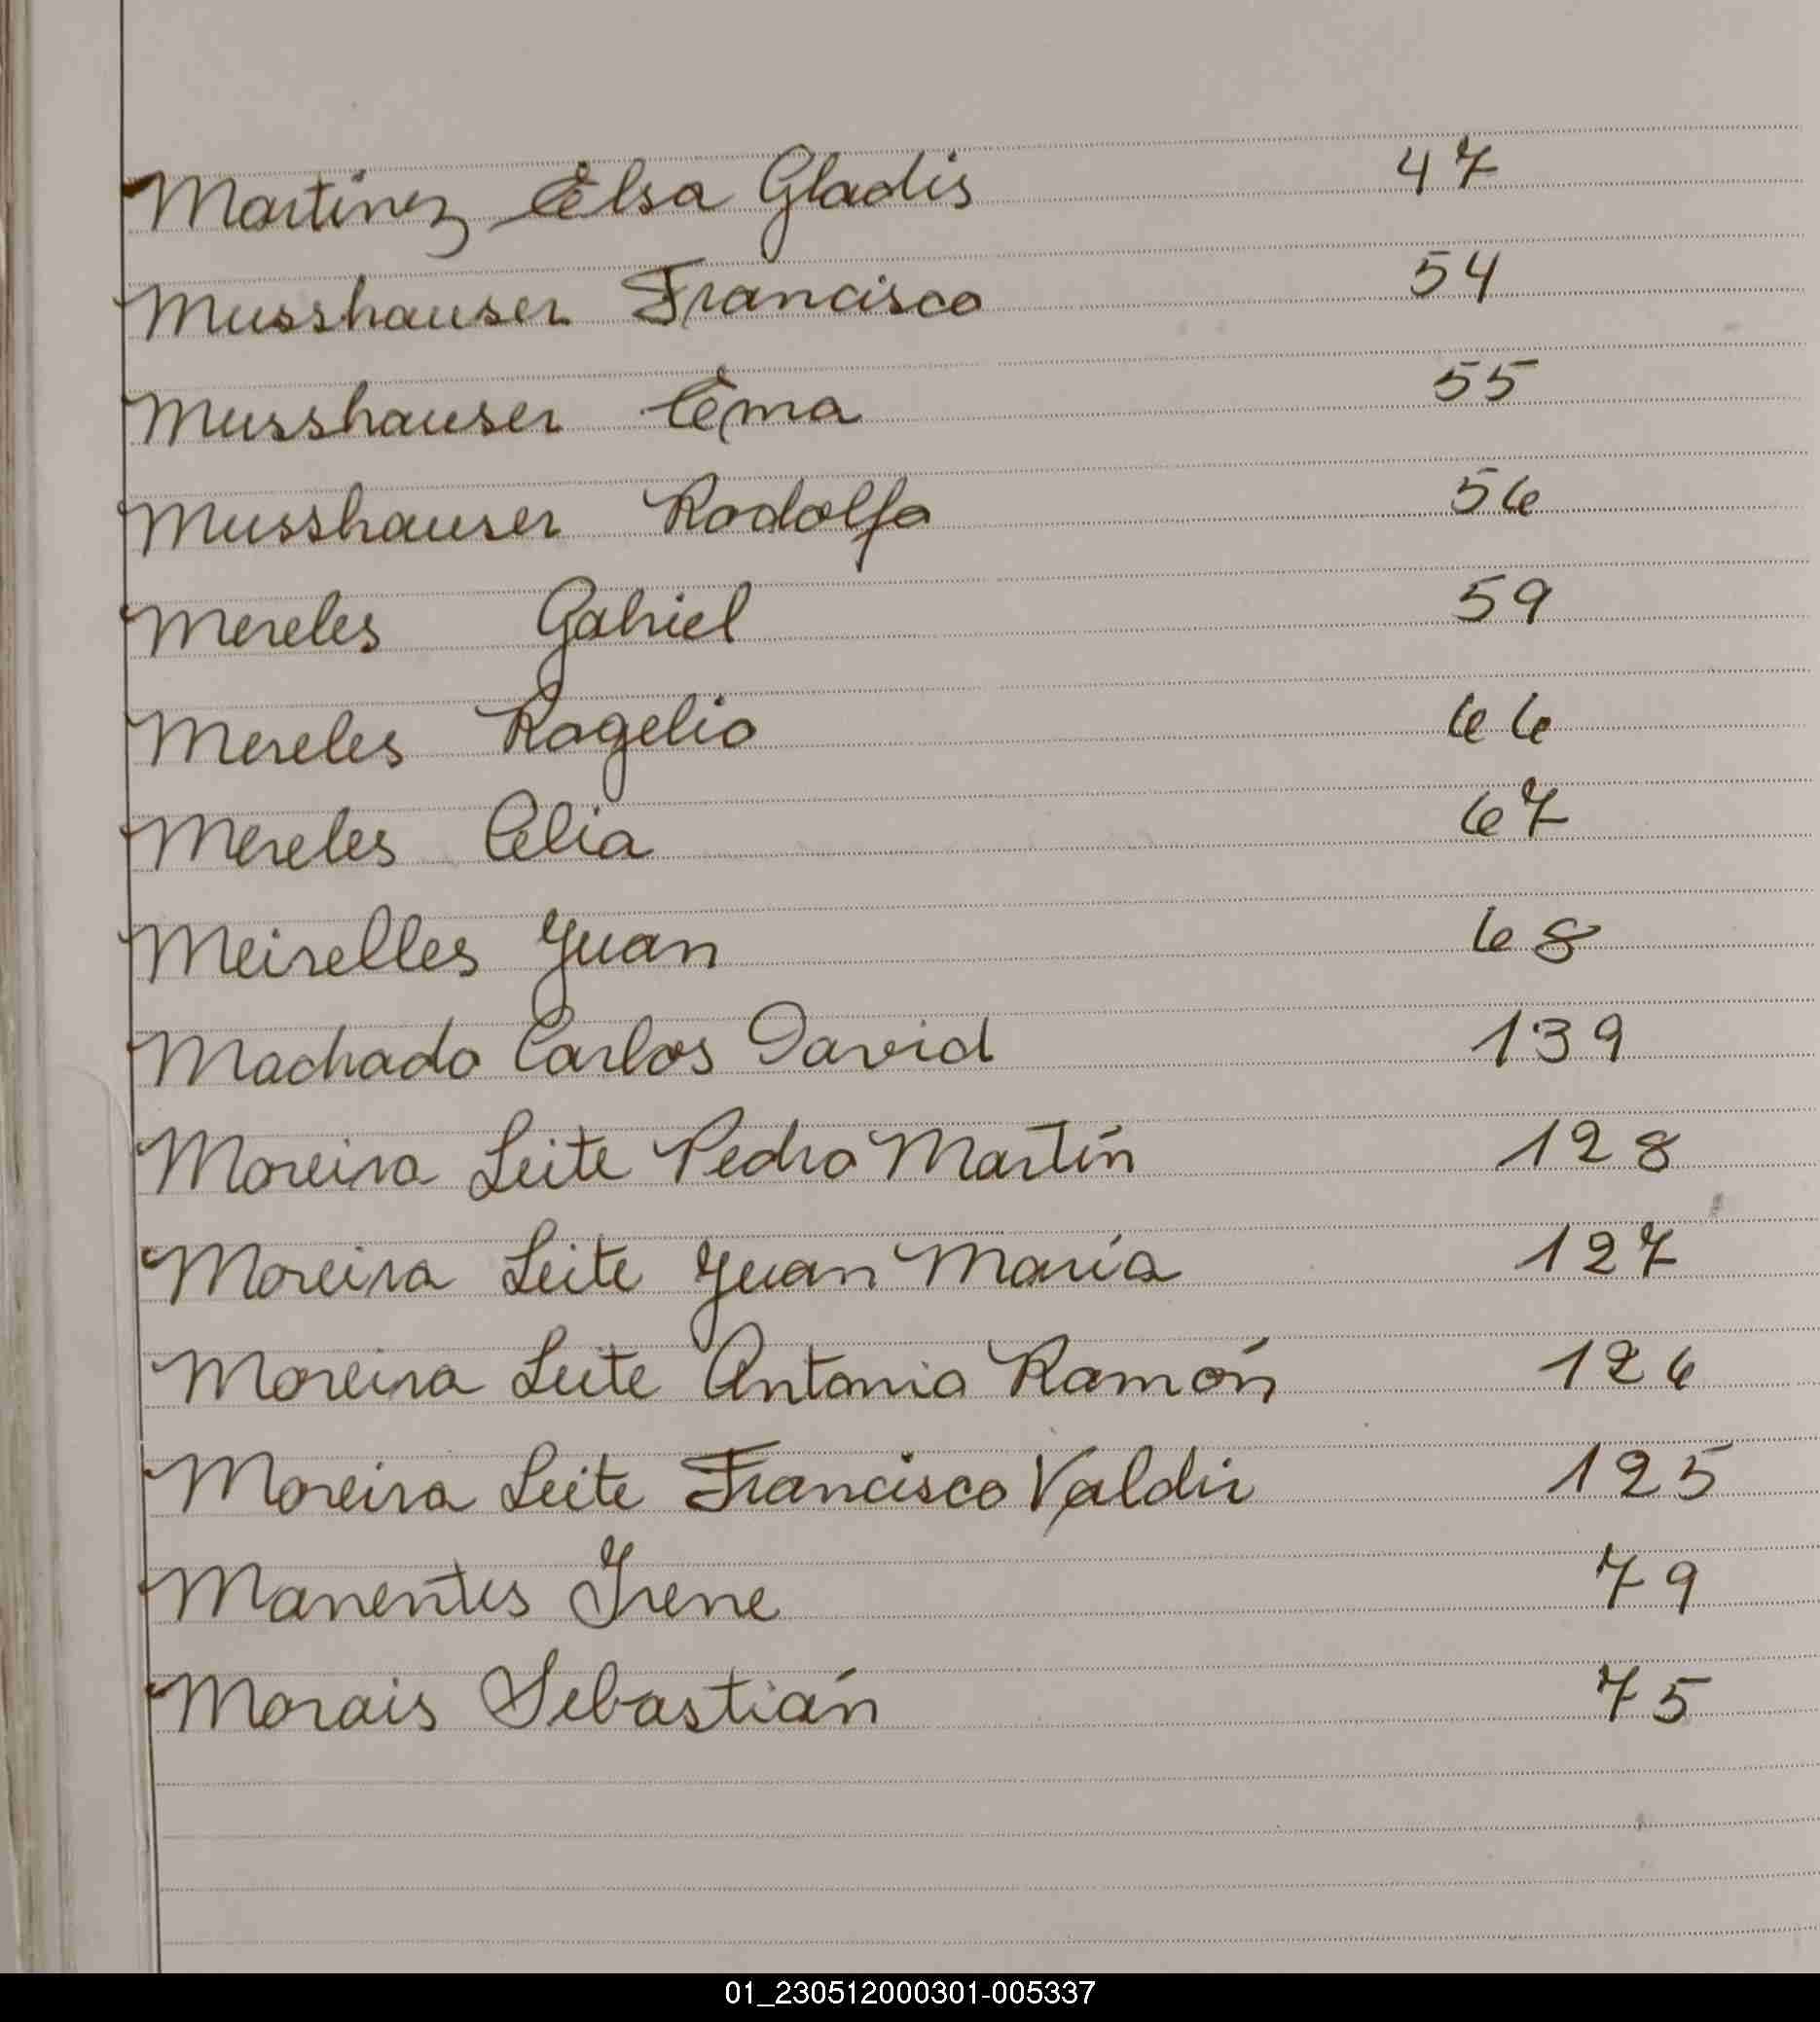 Martinez Elsa Gladis 47
Musshauser Francisco 54
Musshauser Ema 55
Musshauser Rodolfo 56
Mereles Gabriel 59
Mereles Rogelio 66
Mereles Celia 67
Meirelles Juan 68
Machado Carlos David 139
Moreira Leite Pedro Martín 128
Moreira Leite Juan María 127
Moreira Leite Antonio Ramón 126
Moreira Leite Francisco Valdir 125
Manentes Irene 79
Morais Sebastián 75
01_230512000301-005337